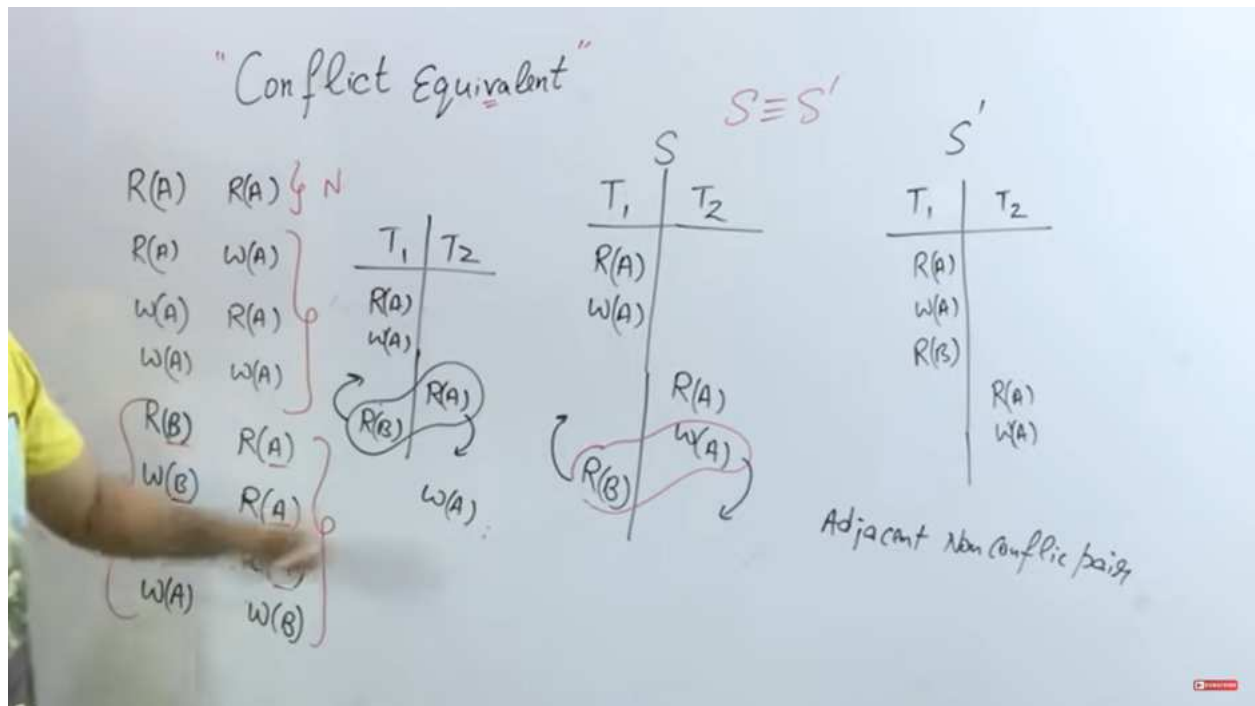 "Conflict Equivalent"
S≡S'
R(A) R(A) } N
R(A) W(A)
W(A) R(A)
W(A) W(A)
R(B) R(A)
W(B) R(A)
W(A) W(B)
T1 T2
R(A)
W(A)
R(A)
R(B)
W(A)
S
T1 T2
R(A)
W(A)
R(A)
W(A)
R(B)
S'
T1 T2
R(A)
W(A)
R(B)
R(A)
W(A)
Adjacent Non Conflic pair
SUBSCRIBE